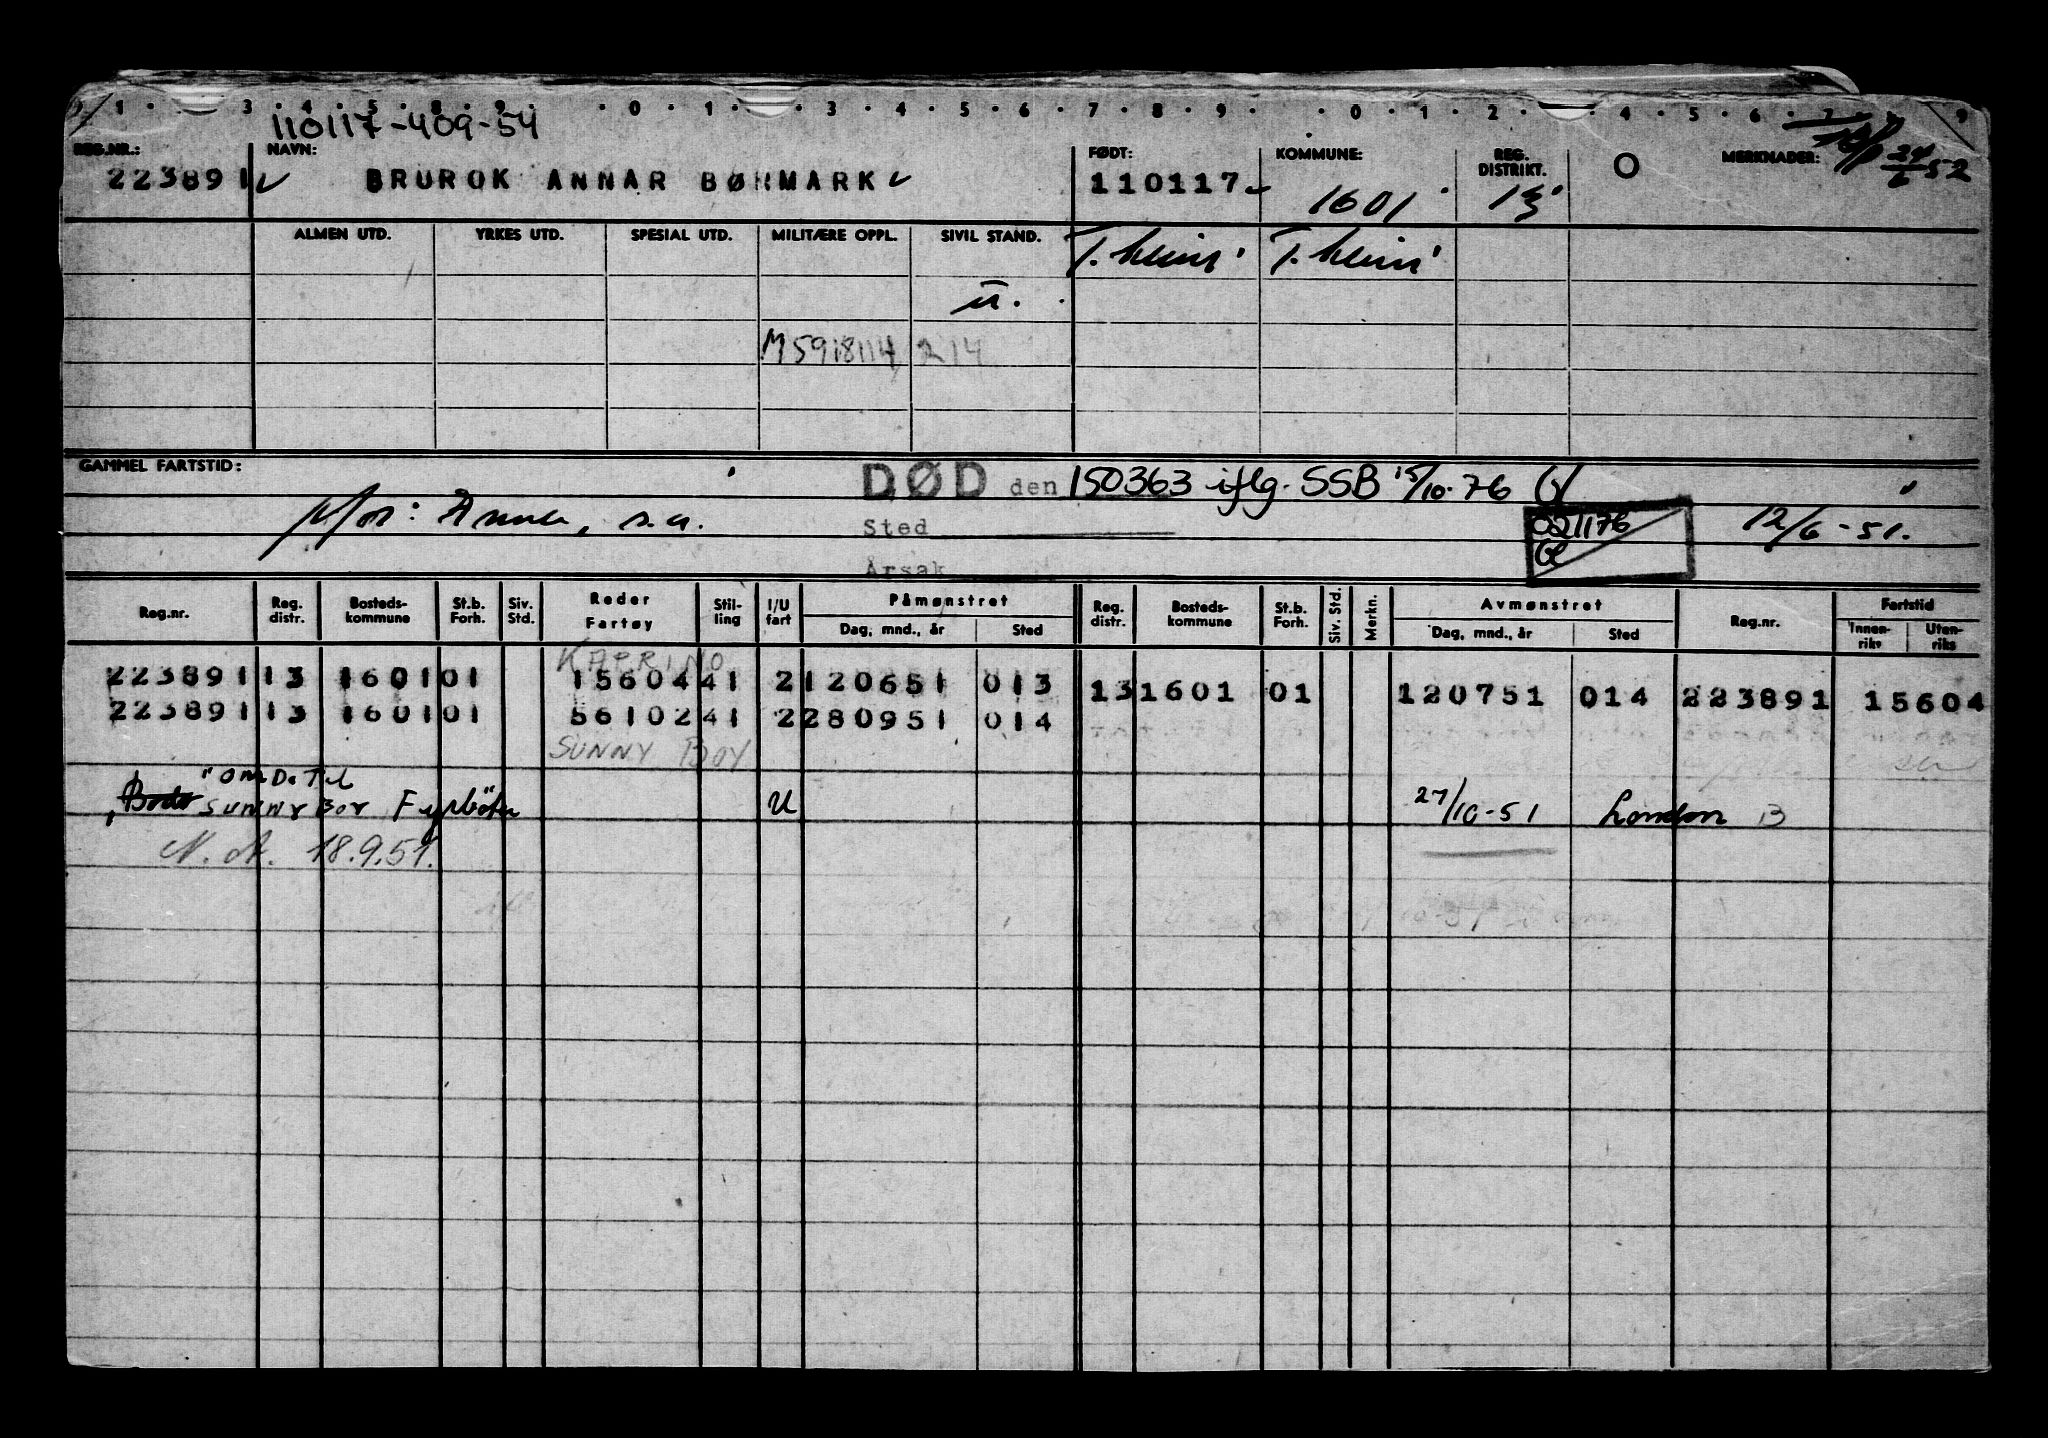 1 3 4 5 8 9 0 1 3 4 5 6 7 8 9 0 1 2 4 5 6 7 9
110117-409-54
REG.NR.: NAVN: FØDT: KOMMUNE: REG. DISTRIKT. O MERKNADER: 24/6 52
223891 BRUROK ANNAR BØHMARK 110117 1601 13
ALMEN UTD. YRKES UTD. SPESIAL UTD. MILITÆRE OPPL. SIVIL STAND. T.heim T.heim
u.
M5918114 214
GAMMEL FARTSTID: DØD den 150363 iflg. SSB 15/10-76
Sted 021176 12/6-51.
Årsak
Reg.nr. Reg. distr. Bosteds-kommune St.b. Forh. Siv. Std. Reder Fartøy Stil-ling I/U fart Påmønstret Reg. distr. Bosteds-kommune St.b. Forh. Siv. Std. Merkn. Avmønstret Reg.nr. Fartstid
Dag, mnd., år Sted Dag, mnd., år Sted Innen-riks Uten-riks
KAPRINO
223891 13 1601 01 15604 41 2 120651 013 13 1601 01 120751 014 223891 15604
223891 13 1601 01 56102 41 2 280951 014
SUNNY BOY
"OmDeTil
SUNNY BOY Fyrbøter U 27/10-51 London B
N.A. 18.9.51.